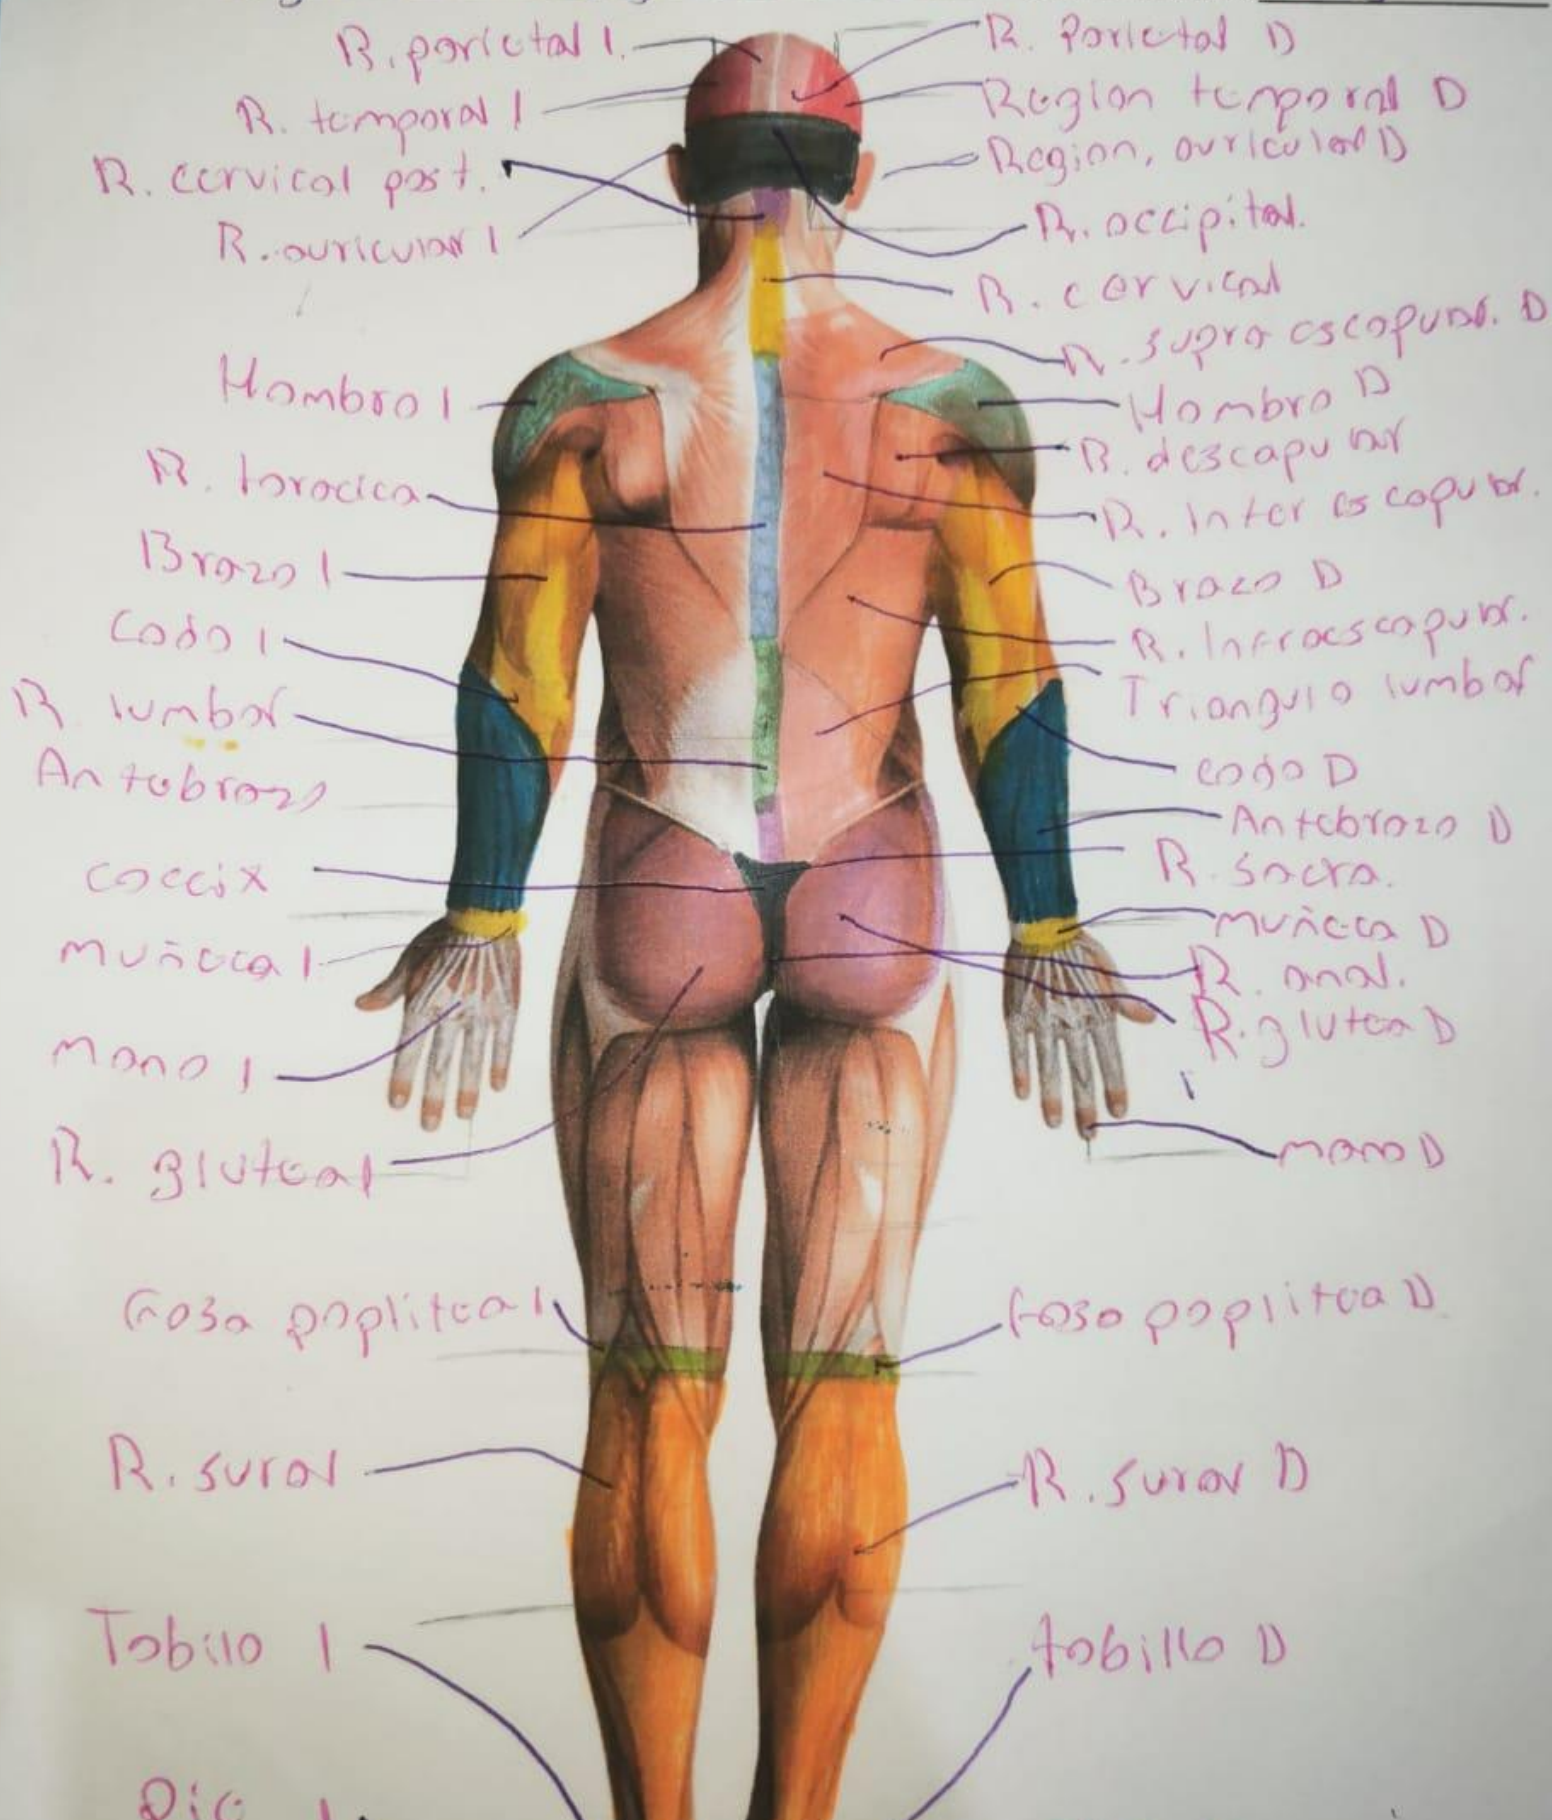 R. parietal I.
R. temporal I
R. cervical post.
R. auricular I
Hombro I
R. toracica
Brazo I
Codo I
R lumbar
Antebrazo
coccix
muñeca I
mano I
R. glutea I
Fosa poplitea I
R. sural
Tobillo I
Pie I
R. Parietal D
Region temporal D
Region, auricular D
R. occipital.
R. cervical
R. supra escapular. D
Hombro D
R. descapular
R. inter escapular.
Brazo D
R. Infraescapular.
Triangulo lumbar
codo D
Antebrazo D
R. sacra.
muñeca D
R. anal.
R. glutea D
mano D
Fosa poplitea D
R. sural D
tobillo D